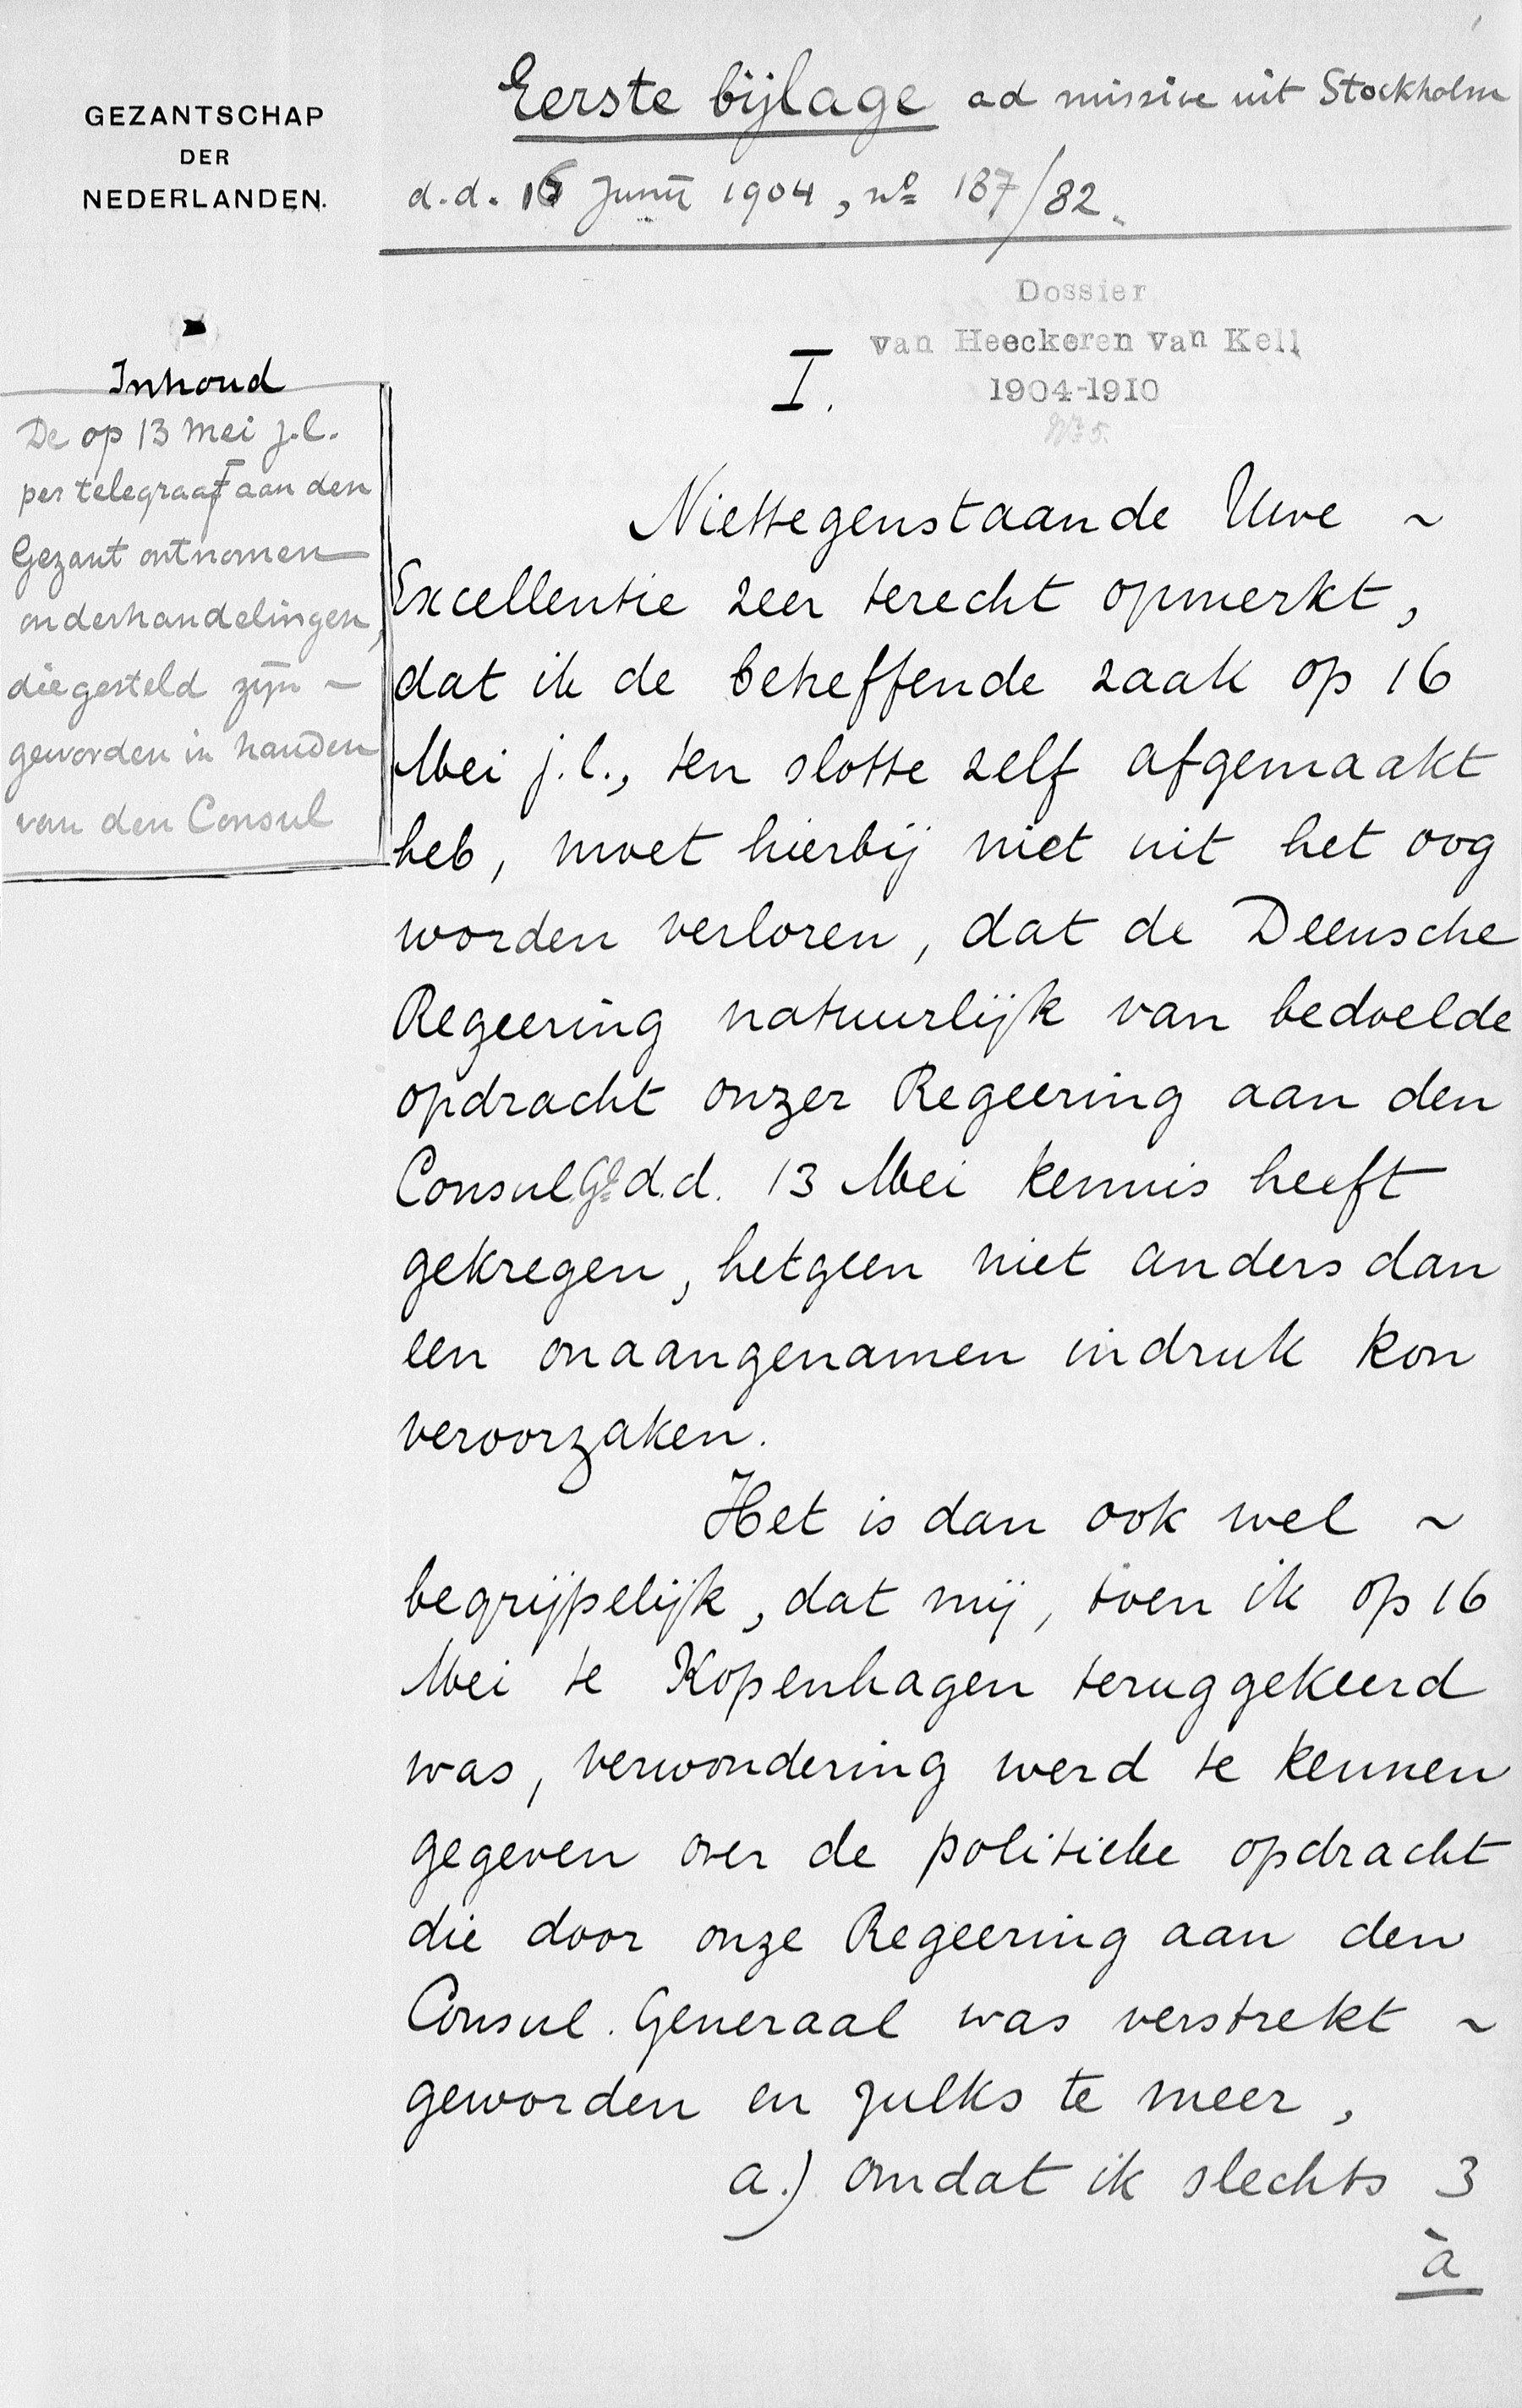 GEZANTSCHAP
DER
NEDERLANDEN.
Eerste bijlage ad missive uit Stockholm
d.d. 16 Junij 1904, no 187/82.
Dossier
van Heeckeren van Kell
1904-1910
No 5.
I.
Inhoud
De op 13 Mei j.l.
per telegraaf aan den
Gezant ontnomen
onderhandelingen,
die gesteld zijn ~
geworden in handen
van den Consul
Niettegenstaande Uwe ~
Excellentie zeer terecht opmerkt,
dat ik de betreffende zaak op 16
Mei j.l., ten slotte zelf afgemaakt
heb, moet hierbij niet uit het oog
worden verloren, dat de Deensche
Regeering natuurlijk van bedoelde
opdracht onzer Regeering aan den
Consul Gl d.d. 13 Mei kennis heeft
gekregen, hetgeen niet anders dan
een onaangenamen indruk kon
veroorzaken.
Het is dan ook wel ~
begrijpelijk, dat mij, toen ik op 16
Mei te Kopenhagen teruggekeerd
was, verwondering werd te kennen
gegeven over de politieke opdracht
die door onze Regeering aan den
Consul. Generaal was verstrekt ~
geworden en zulks te meer,
a.) omdat ik slechts 3
à